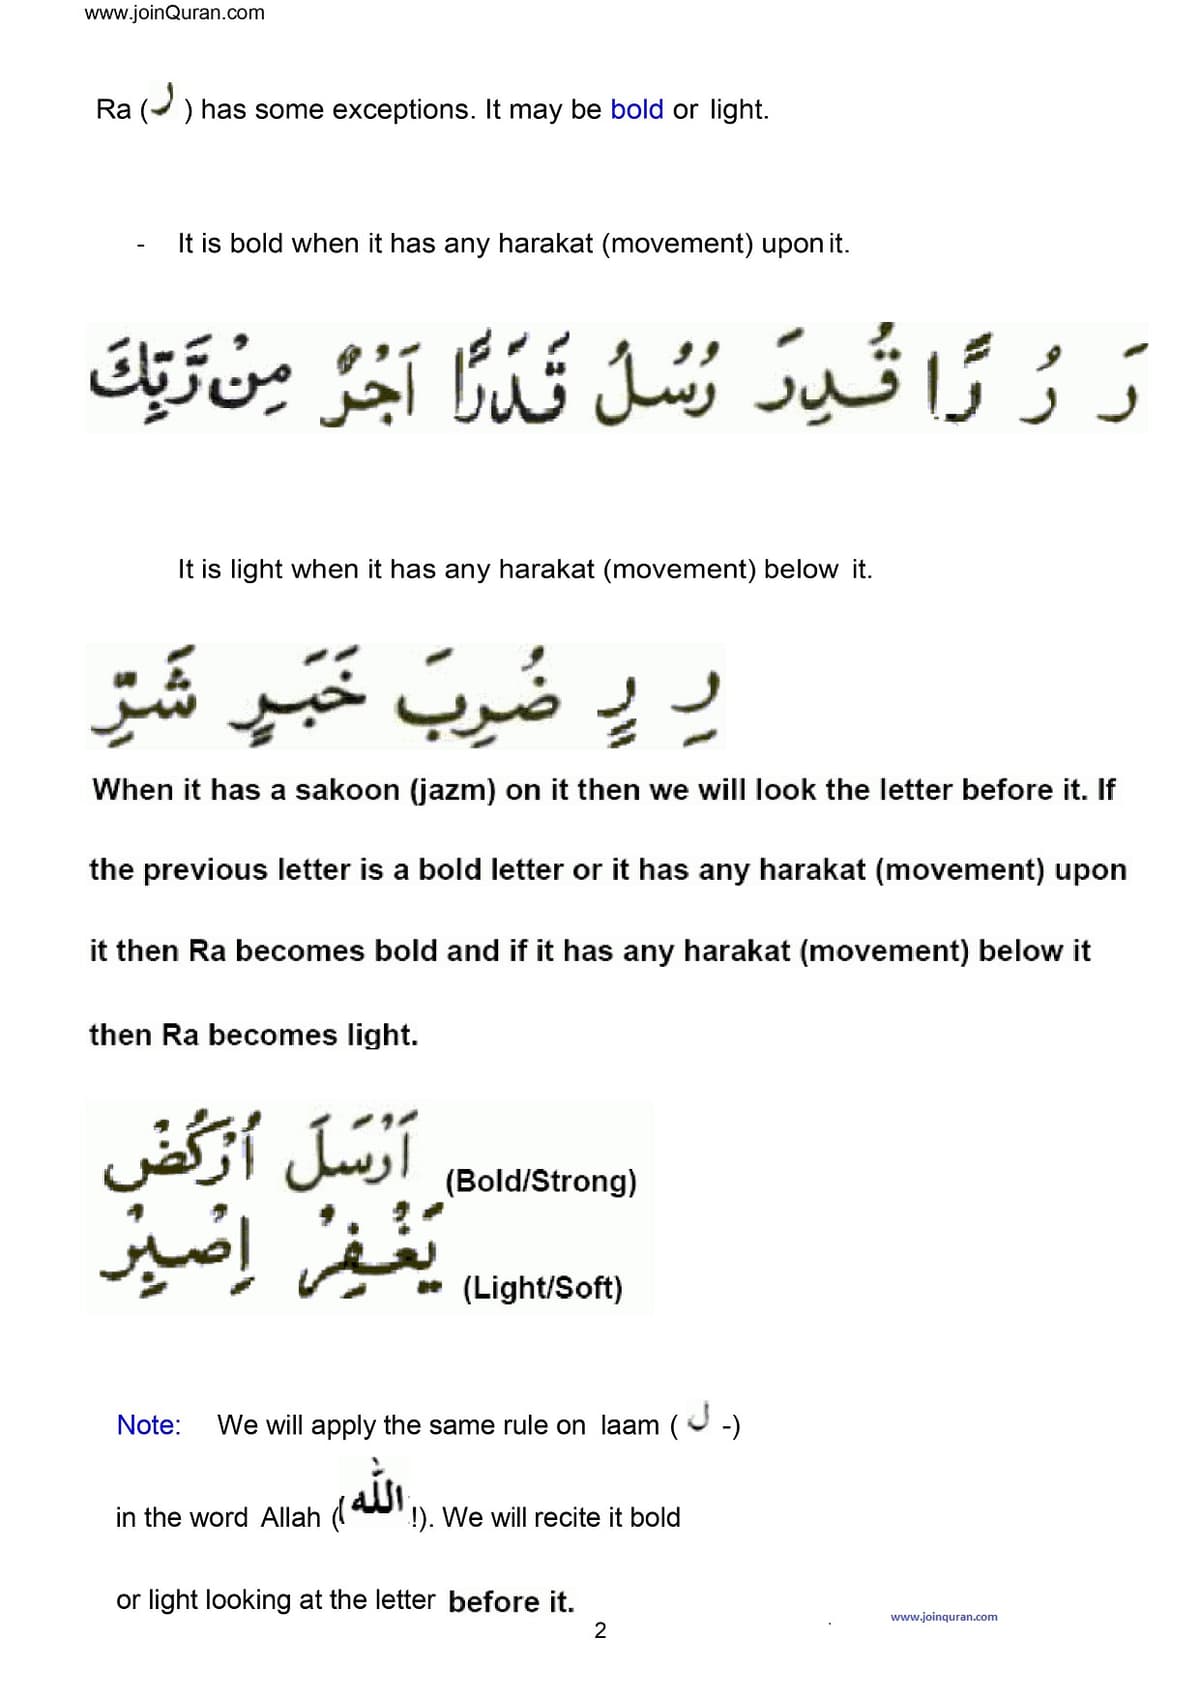 www.joinQuran.com
Ra (ر) has some exceptions. It may be bold or light.
- It is bold when it has any harakat (movement) upon it.
رَ رُ رًّا قُدِرَ رُسُلُ قَدَرًا اَجْرٌ مِنْ رَّبِّكَ
It is light when it has any harakat (movement) below it.
رِ رٍ ضُرِبَ خَبَرٍ شَرِّ
When it has a sakoon (jazm) on it then we will look the letter before it. If
the previous letter is a bold letter or it has any harakat (movement) upon
it then Ra becomes bold and if it has any harakat (movement) below it
then Ra becomes light.
اَرْسَلَ اُرْكُضْ (Bold/Strong)
يَغْفِرْ اِصْبِرْ (Light/Soft)
Note: We will apply the same rule on laam ( ل -)
in the word Allah (الله !). We will recite it bold
or light looking at the letter before it.
2
www.joinquran.com